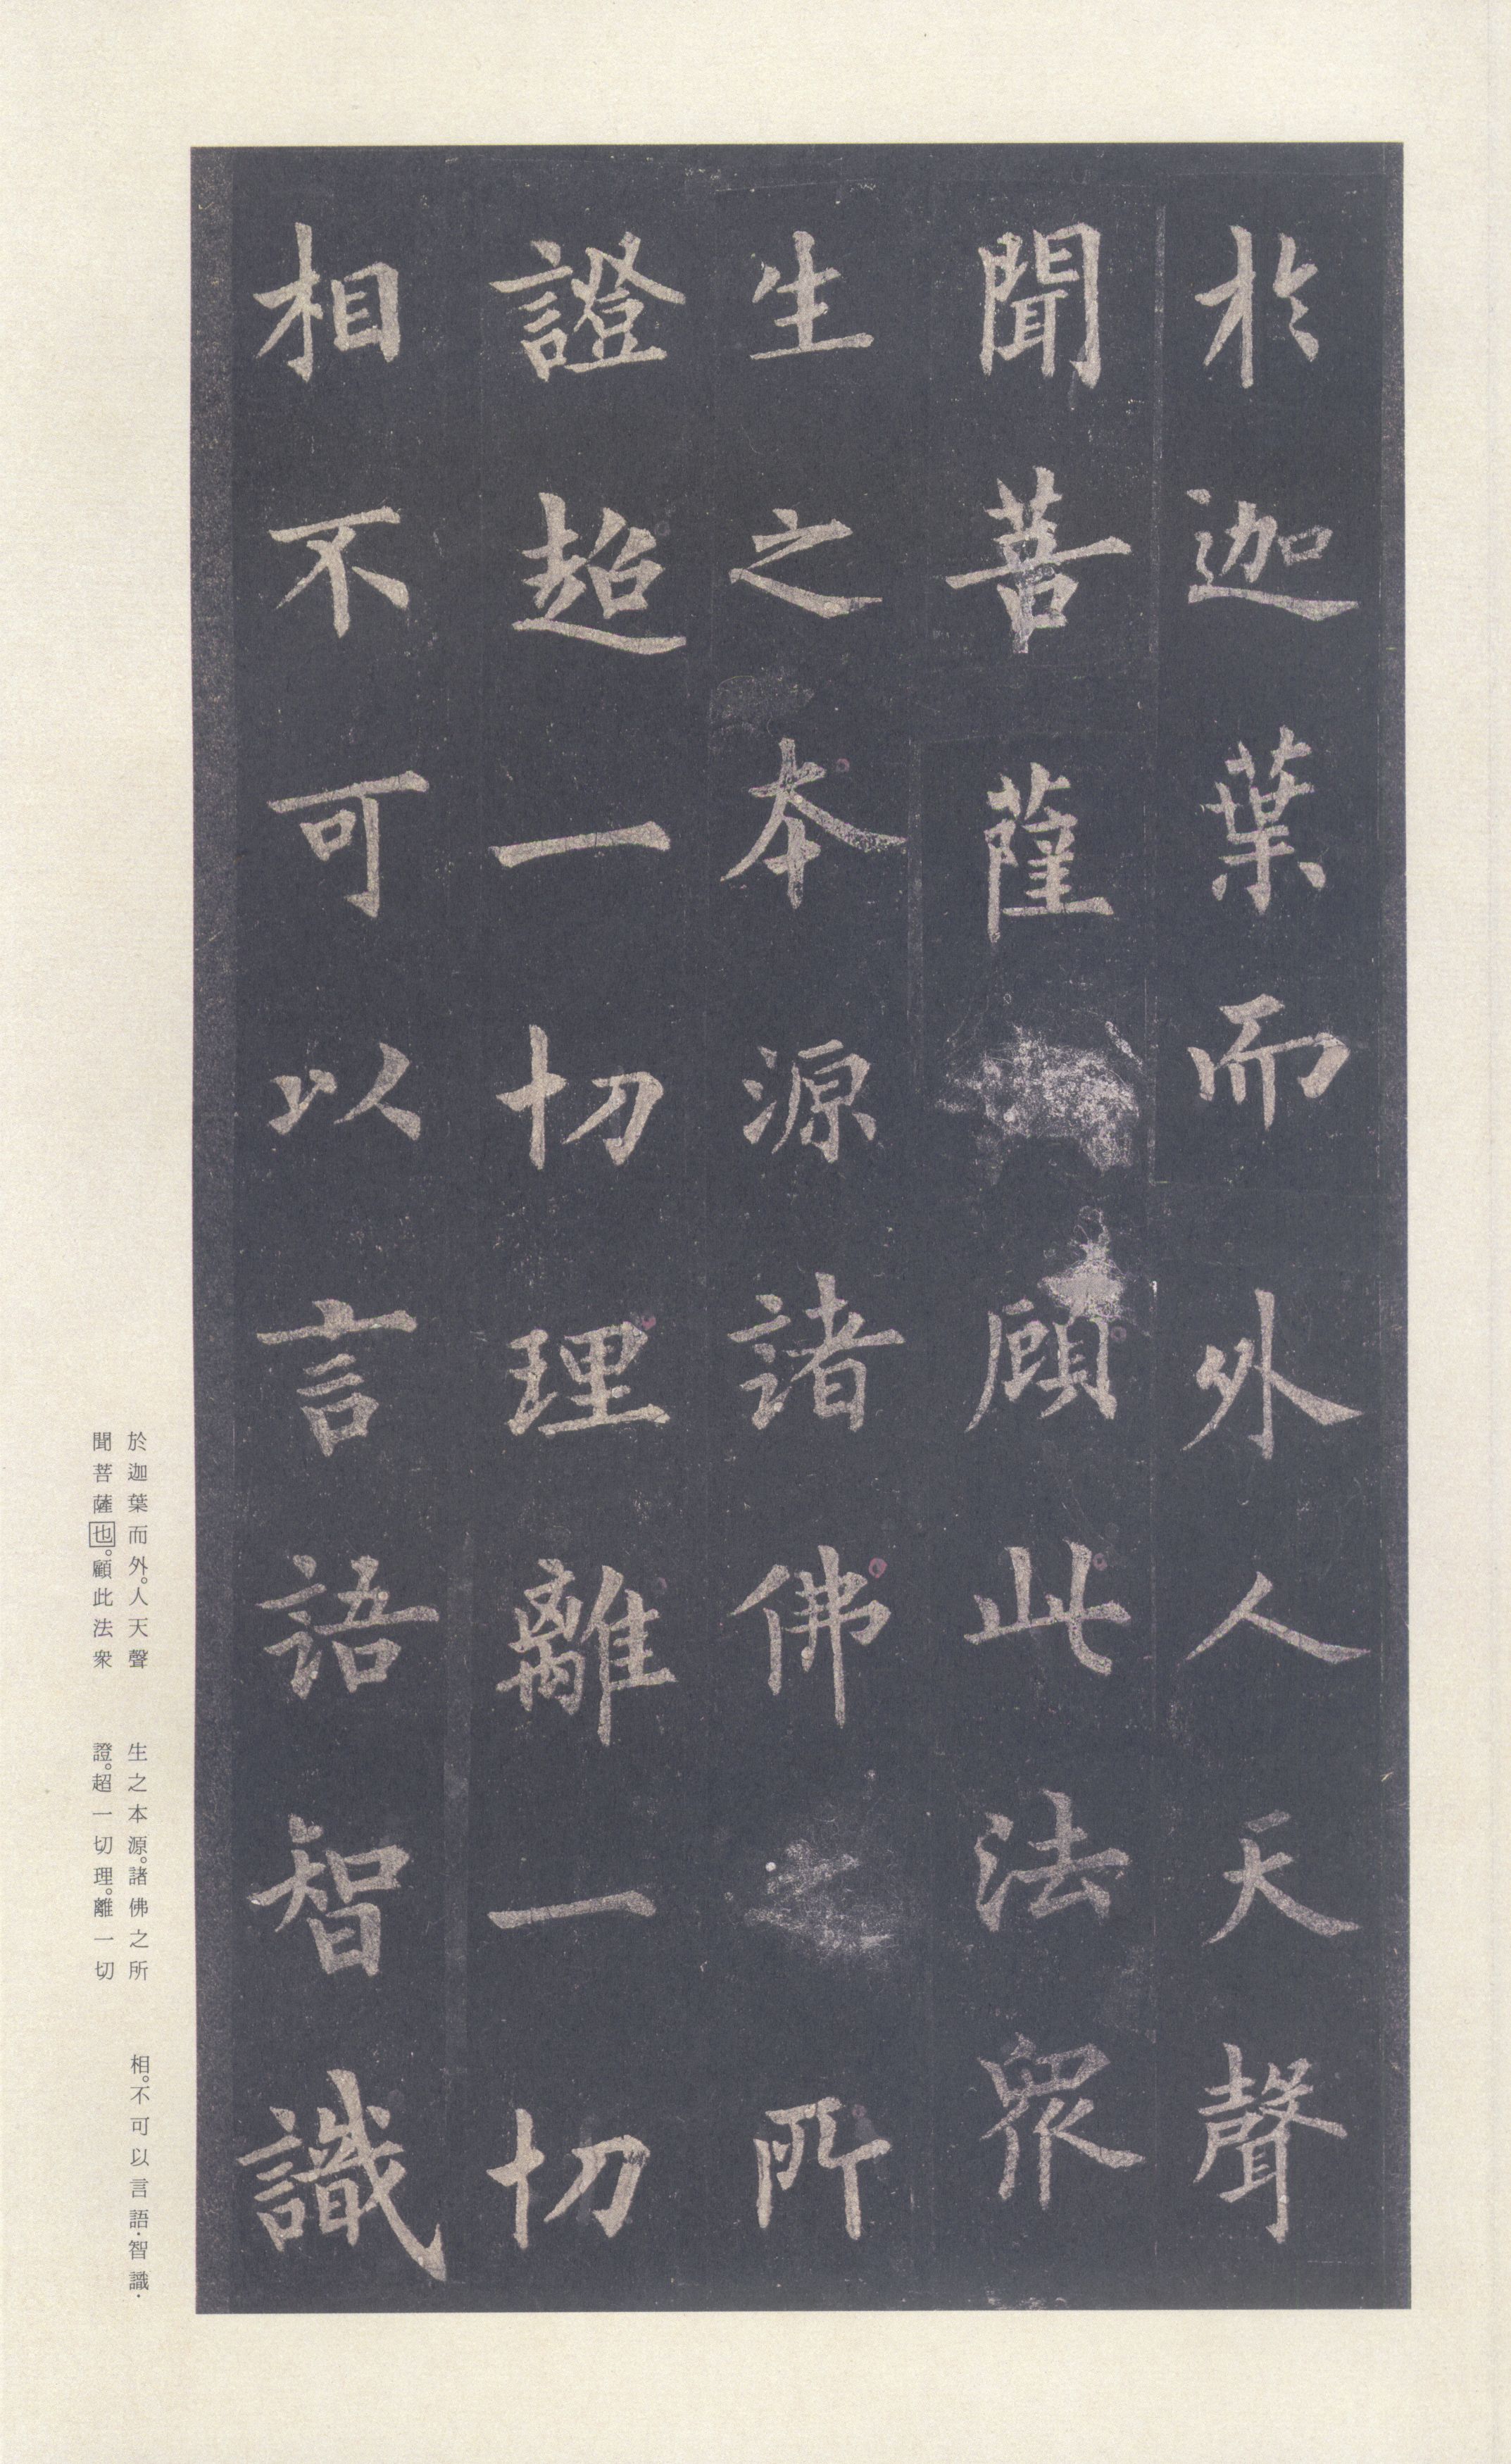 於迦葉而外人天聲
聞菩薩顧此法衆
生之本源諸佛之所
證超一切理離一切
相不可以言語智識
於迦葉而外。人天聲
聞菩薩也。顧此法衆
生之本源。諸佛之所
證。超一切理。離一切
相。不可以言語·智識·